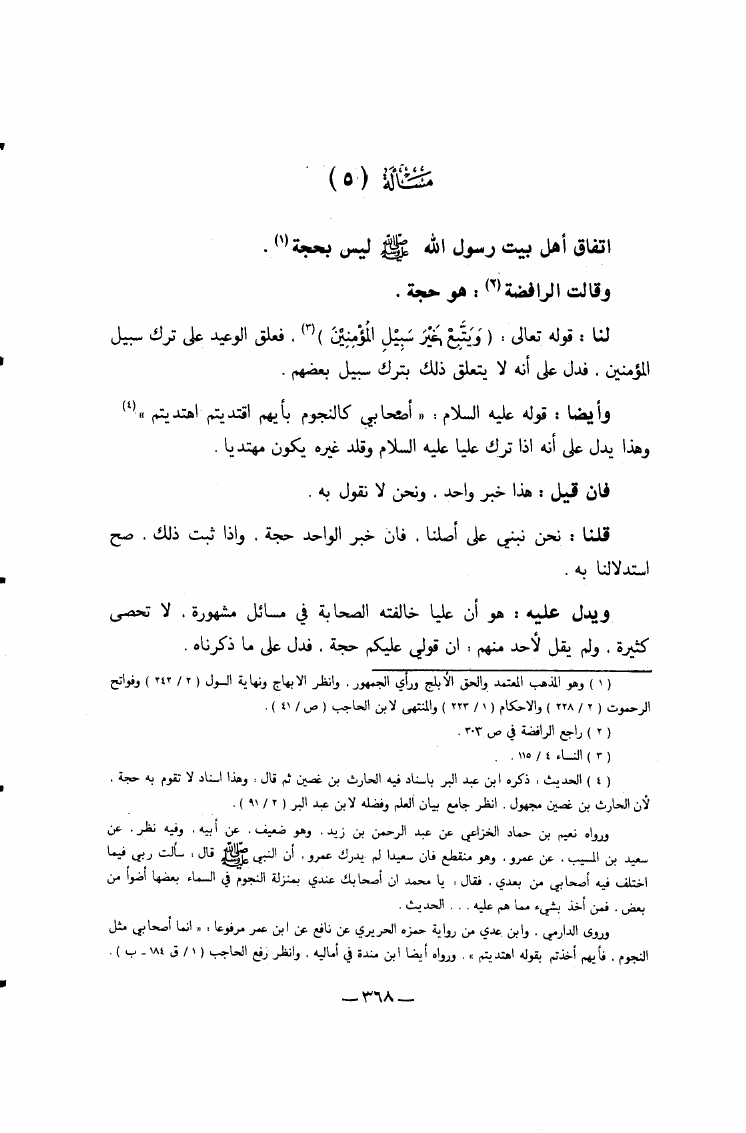 مسألة (٥)
اتفاق أهل بيت رسول الله ﷺ ليس بحجة(١) .
وقالت الرافضة(٢) : هو حجة .
لنا : قوله تعالى : ( وَيَتَّبِعْ غَيْرَ سَبِيْلِ المُؤْمِنِيْنَ )(٣) . فعلق الوعيد على ترك سبيل
المؤمنين . فدل على أنه لا يتعلق ذلك بترك سبيل بعضهم .
وأيضا : قوله عليه السلام : « أصحابي كالنجوم بأيهم اقتديتم اهتديتم »(٤)
وهذا يدل على أنه اذا ترك عليا عليه السلام وقلد غيره يكون مهتديا .
فان قيل : هذا خبر واحد . ونحن لا نقول به .
قلنا : نحن نبني على أصلنا . فان خبر الواحد حجة . واذا ثبت ذلك . صح
استدلالنا به .
ويدل عليه : هو أن عليا خالفته الصحابة في مسائل مشهورة . لا تحصى
كثيرة . ولم يقل لأحد منهم : ان قولي عليكم حجة . فدل على ما ذكرناه .
( ١ ) وهو المذهب المعتمد والحق الأبلج ورأي الجمهور . وانظر الابهاج ونهاية السول ( ٢ / ٢٤٢ ) وفواتح
الرحموت ( ٢ / ٢٢٨ ) والاحكام ( ١ / ٢٢٣ ) والمنتهى لابن الحاجب ( ص / ٤١ ) .
( ٢ ) راجع الرافضة في ص ٣٠٣ .
( ٣ ) النساء ٤ / ١١٥ .
( ٤ ) الحديث : ذكره ابن عبد البر باسناد فيه الحارث بن غصين ثم قال : وهذا اسناد لا تقوم به حجة .
لأن الحارث بن غصين مجهول . انظر جامع بيان العلم وفضله لابن عبد البر ( ٢ / ٩١ ) .
ورواه نعيم بن حماد الخزاعي عن عبد الرحمن بن زيد . وهو ضعيف . عن أبيه . وفيه نظر . عن
سعيد بن المسيب . عن عمرو . وهو منقطع فان سعيدا لم يدرك عمرو . أن النبي ﷺ قال : سألت ربي فيما
اختلف فيه أصحابي من بعدي . فقال : يا محمد ان أصحابك عندي بمنزلة النجوم في السماء بعضها أضوأ من
بعض . فمن أخذ بشيء مما هم عليه . . . الحديث .
وروى الدارمي . وابن عدي من رواية حمزه الحريري عن نافع عن ابن عمر مرفوعا : « انما أصحابي مثل
النجوم . فأيهم أخذتم بقوله اهتديتم » . ورواه أيضا ابن مندة في أماليه . وانظر رفع الحاجب ( ١ / ق ١٨٤ ـ ب ) .
— ٣٦٨ —